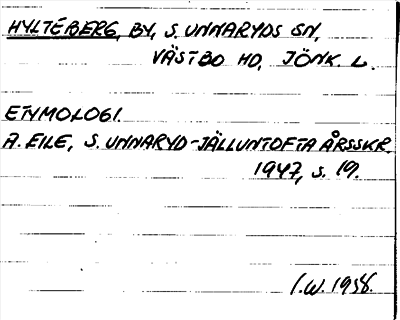 HYLTEBERG, BY, S. UNNARYDS SN,
VÄSTBO HD, JÖNK. L.
ETYMOLOGI.
A. EILE, S. UNNARYD-JÄLLUNTOFTA ÅRSSKR.
1947, s. 19.
I.W. 1958.